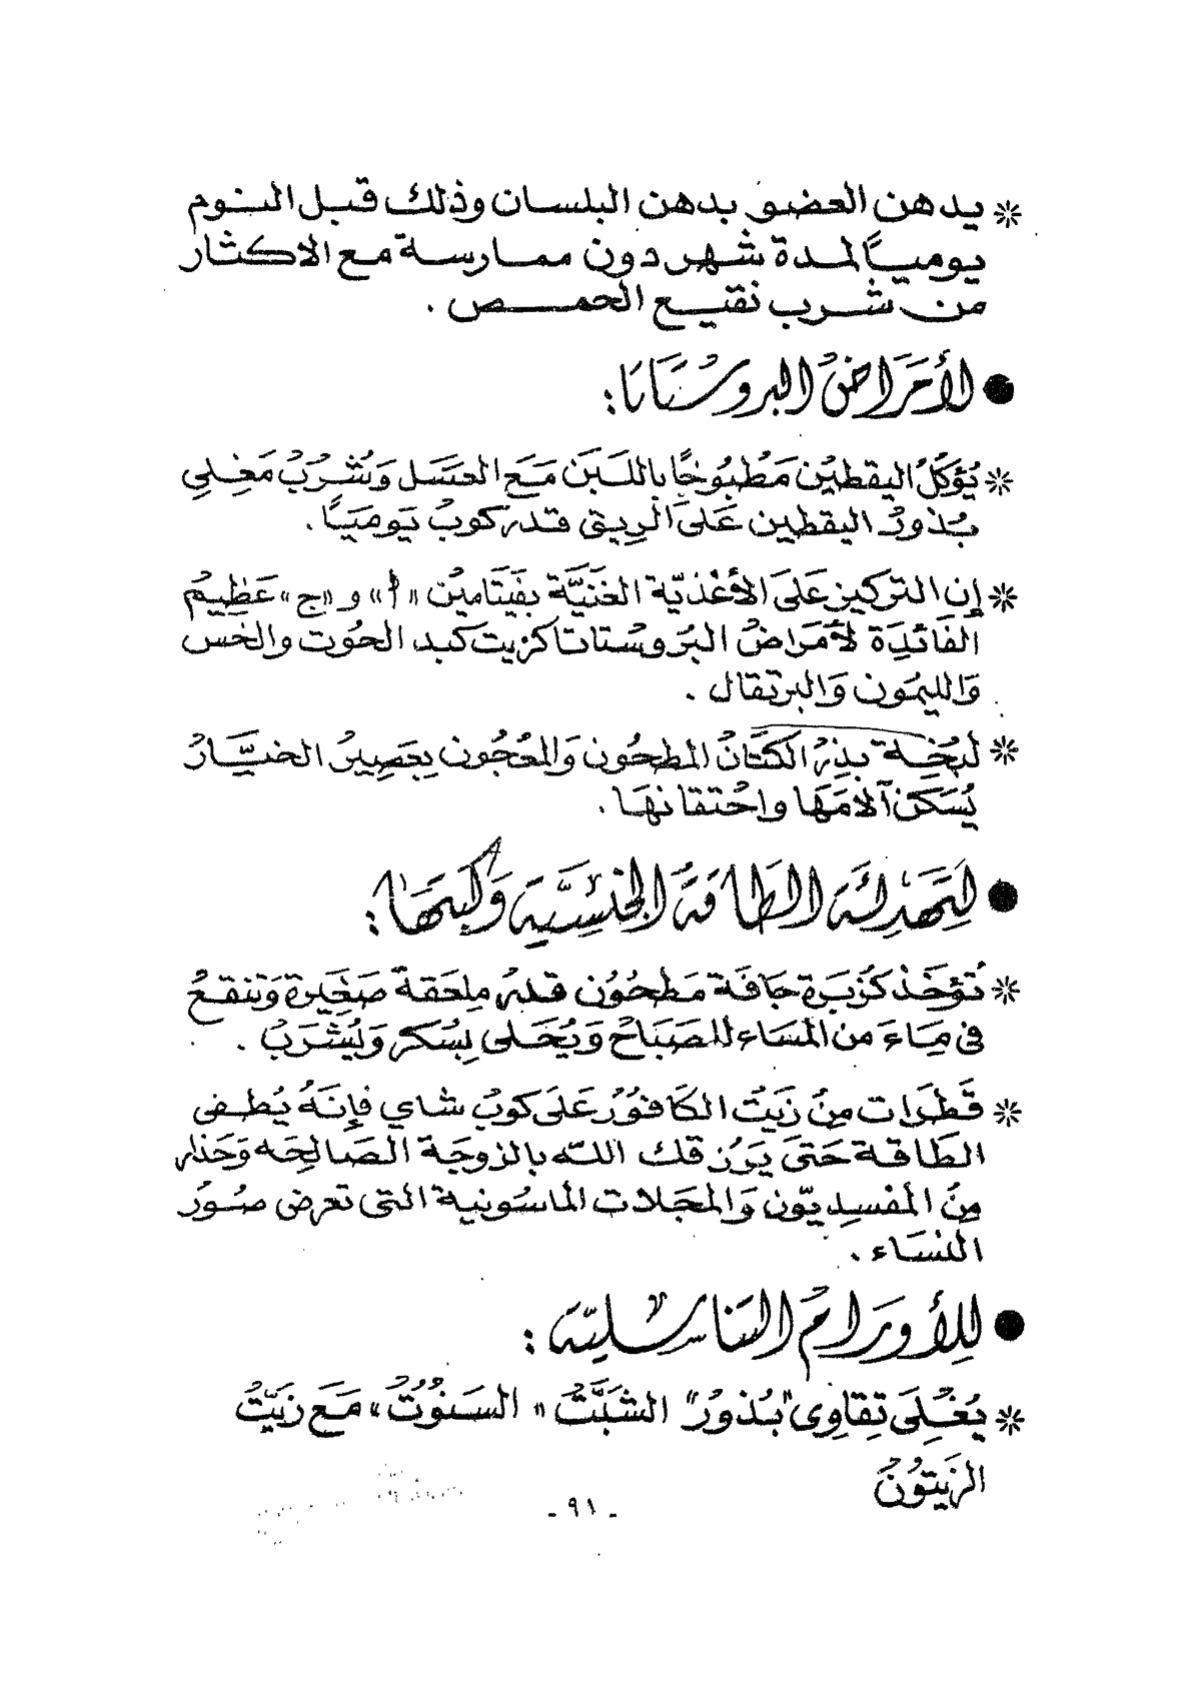 * يدهن العضو بدهن البلسان وذلك قبل النوم
يومياً لمدة شهر دون ممارسة مع الاكثار
من شرب نقيع الحمص .
● لأمَراضْ البروسْتَاتَا :
* يُؤكَلُ اليقطيْن مَطْبُوخًا باللبَن مَعَ العسَل وَيُشْرَبْ مَغْلي
بُذورْ اليقطين عَلى الريق قدر كوبْ يَوميَاً .
* إن التركيز عَلىَ الأغْذيّة الغَنيَّة بفَيتَامينْ «أ» و «ج» عَظِيمْ
الفَائدِة لأمَراضْ البرُوسْتاتا كزيت كبد الحوُت والخَس
وَالليمُون وَالبرتقال .
* لبْخِة بذِرْ الكتَانْ المطحُون وَالمعْجُون بِعَصِيرْ الخيَّارْ
يُسَكنْ آلامَهَا واحْتقانهَا .
● لتَهْدِئَة الطَاقَة الجنْسِيَّة وَكبَتهَا :
* تُؤخَذْ كزْبَرة جَافَة مَطحُوُن قدرْ مِلعَقةْ صَغَيرة وَتنقعْ
في مِاءَ من المسَاء للصَبَاحْ وَيُحَلى بِسُكر وَيُشْرَبْ .
* قَطَرَات مِنْ زَيَتْ الكَافوُرْ عَلىَ كوبْ شاي فإنَهُ يُطفى
الطَاقة حَتىَ يَرزقك الله بالزوجَة الصَالِحَه وَحَذار
مِنْ المفْسِديّون وَالمجَلات الماسُونية التى تعرض صُوَرْ
النسَاء .
● لِلأورَامْ التنَاسُليّة :
* يُغْلَى تِقاوِى "بُذورْ" الشبَّتْ «السَنوُتْ» مَعَ زَيَتْ
الزَيَتوُنْ
- ٩١ -